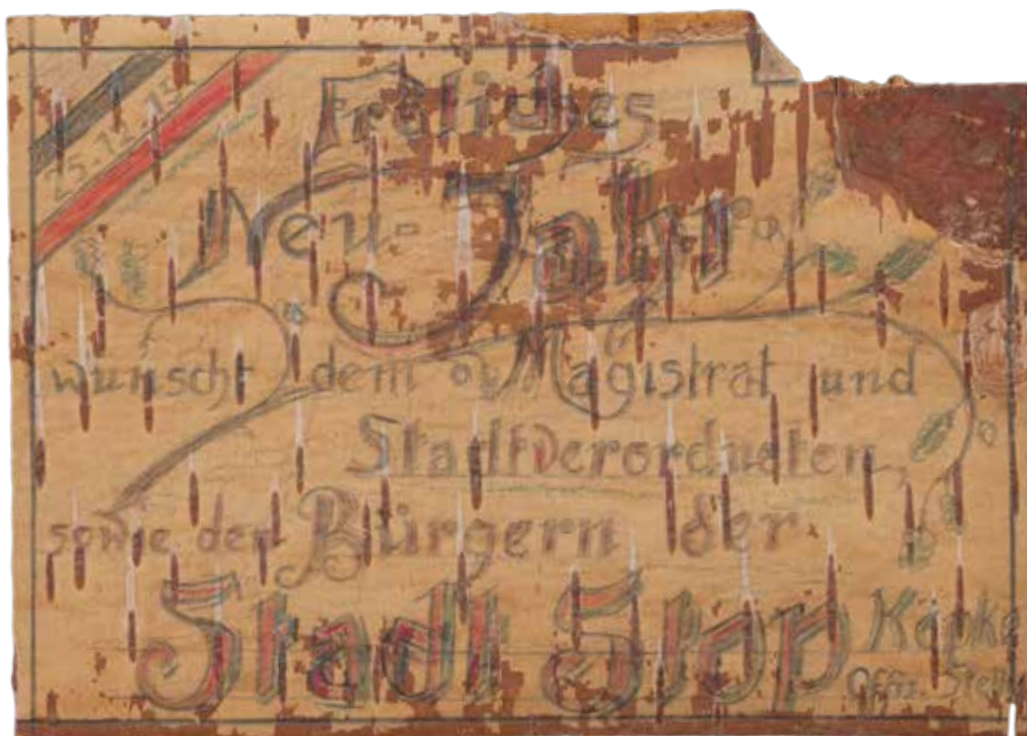 25.12.15
Fröliches
Neu-Jahr
wünscht dem Magistrat und
Stadtverordneten,
sowie den Bürgern der
Stadt Stop
Offz. Stellv